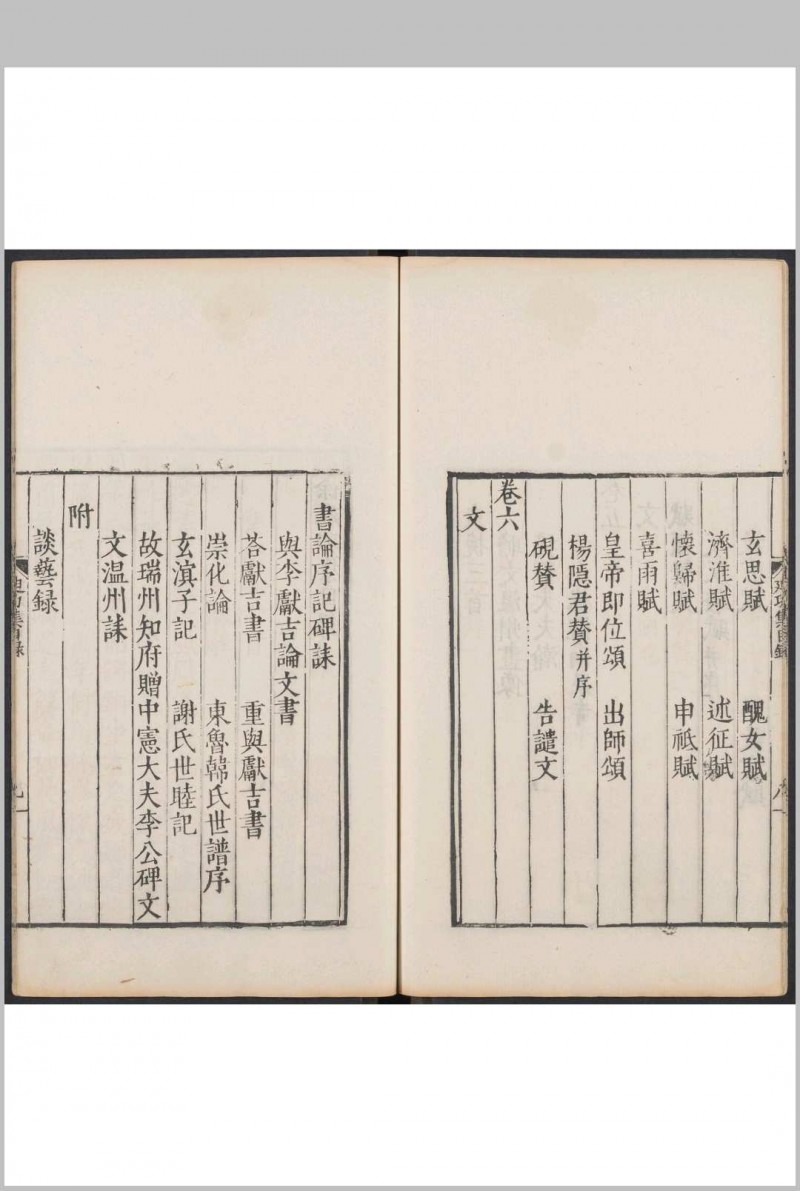 迪功集目錄 八
玄思賦 醜女賦
濟淮賦 述征賦
懷歸賦 申祗賦
喜雨賦
皇帝即位頌 出師頌
楊隱君賛并序
硯賛 告譴文
卷六
文
書論序記碑誄
與李獻吉論文書
荅獻吉書 重與獻吉書
崇化論 東魯韓氏世譜序
玄滇子記 謝氏世睦記
故瑞州知府贈中憲大夫李公碑文
文温州誄
附
談藝録
迪功集目録 九